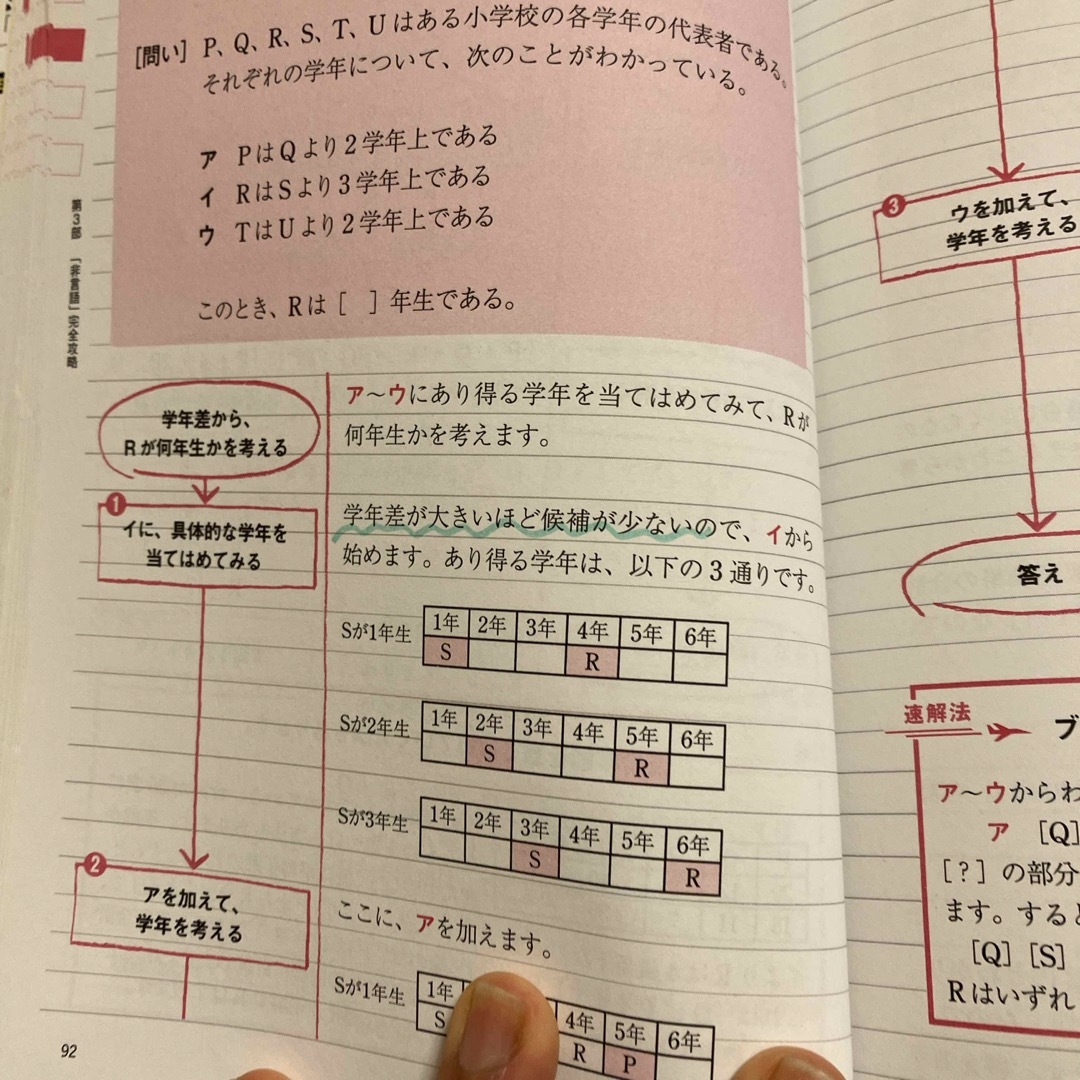 [問い] P、Q、R、S、T、Uはある小学校の各学年の代表者である。
それぞれの学年について、次のことがわかっている。
ア PはQより2学年上である
イ RはSより3学年上である
ウ TはUより2学年上である
このとき、Rは[ ]年生である。
第3部 「非言語」完全攻略
学年差から、
Rが何年生かを考える
1
イに、具体的な学年を
当てはめてみる
2
アを加えて、
学年を考える
ア〜ウにあり得る学年を当てはめてみて、Rが
何年生かを考えます。
学年差が大きいほど候補が少ないので、イから
始めます。あり得る学年は、以下の3通りです。
Sが1年生
1年 2年 3年 4年 5年 6年
S R
Sが2年生
1年 2年 3年 4年 5年 6年
S R
Sが3年生
1年 2年 3年 4年 5年 6年
S R
ここに、アを加えます。
Sが1年生
1年 4年 5年 6年
S R P
92
3
ウを加えて、
学年を考える
答え
速解法
ブ
ア〜ウからわ
ア [Q]
[?]の部分
ます。すると
[Q][S]
Rはいずれ